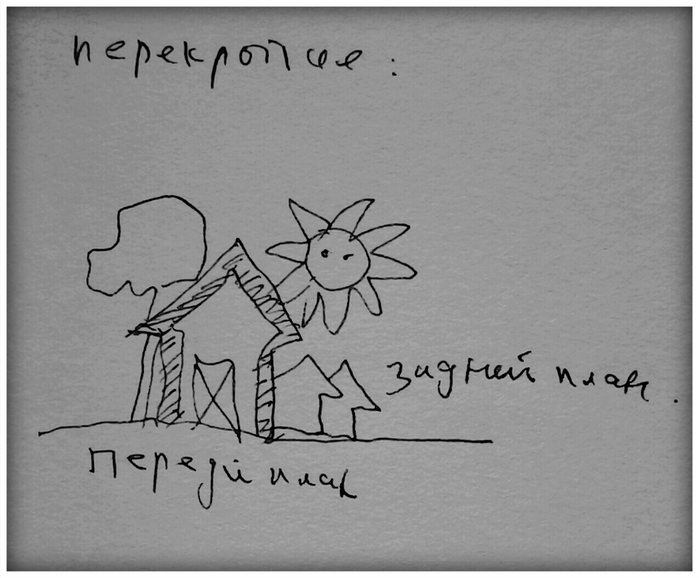 перекрытие :
задний план .
Передй план